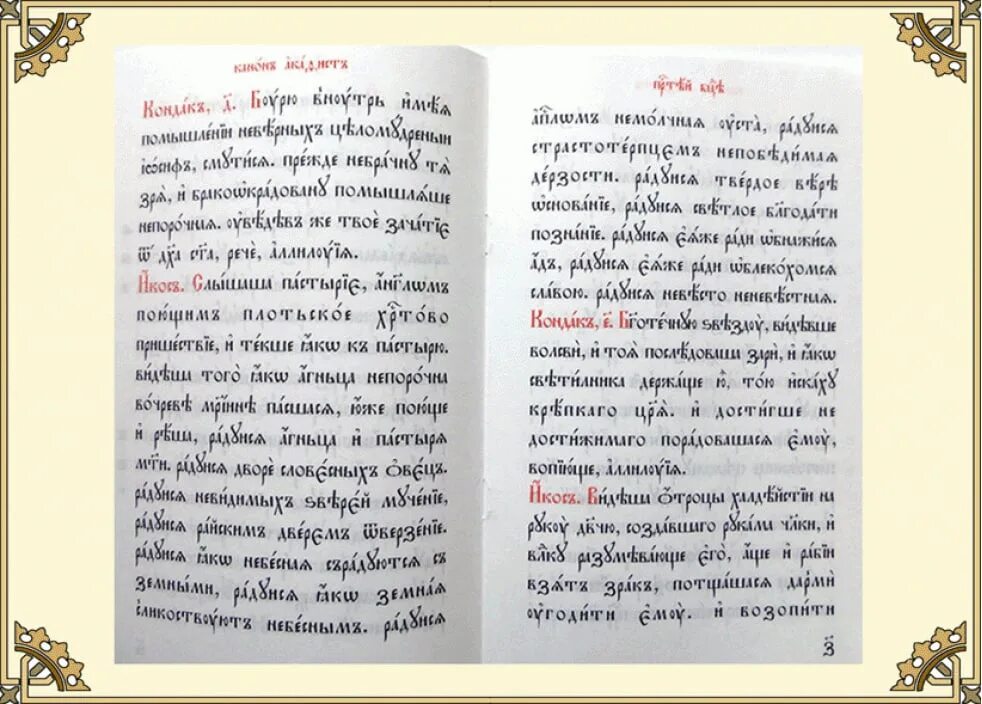 канѡ́нъ а҆ка́ѳистъ
Конда́къ, д҃. Бо́урю вноу́трь и҆мѣ́ѧ
помышле́нїи невѣ́рныхъ цѣломꙋ́дреныи
і҆ѡ́сифъ, смꙋти́сѧ. пре́жде небра́чнꙋ тѧ̀
зрѧ̀, и҆ бракоѡ҆кра́дованꙋ помышлѧ́ше
непоро́чнаѧ. оу҆вѣ́дѣвъ же твоѐ зача́тїє
ѿ дх҃а ст҃а, речѐ, а҆ллилоу́їѧ.
И҆́косъ. Слы́шаша па́стырїє, а҆́нг҃лѡмъ
пою́щимъ пло́тьское хрⷭ҇то́во
прише́ствїе, и҆ те́кше ꙗ҆́кѡ къ па́стырю.
ви́дѣша того̀ ꙗ҆́кѡ а҆́гньца непоро́чна
во́чревѣ мр҃і́инѣ па́сшасѧ, ю҆́же пою́ще
и҆ рѣ́ша, ра́дꙋисѧ а҆́гньца и҆ па́стырѧ
мт҃и. ра́дꙋисѧ дво́ре слове́сныхъ ѻ҆ве́цъ.
ра́дꙋисѧ неви́димыхъ ѕвѣре́й мꙋче́нїе,
ра́дꙋисѧ ра́йскимъ две́рємъ ѿверзе́нїе.
ра́дꙋисѧ ꙗ҆́кѡ небе́снаѧ съра́дꙋютсѧ съ
земны́ми, ра́дꙋисѧ ꙗ҆́кѡ земна́ѧ
сликоствоу́ютъ небе́снымъ. ра́дꙋисѧ
прⷭ҇тѣ́й бц҃ѣ
а҆пⷭ҇лѡмъ немо́лчнаѧ оу҆ста̀, ра́дꙋисѧ
страстоте́рпцємъ непобѣди́маѧ
де́рзости. ра́дꙋисѧ тве́рдое вѣ́рѣ
ѡ҆снова́нїе, ра́дꙋисѧ свѣ́тлое блг҃ода́ти
позна́нїе. ра́дꙋисѧ є҆ѧ́же ра́ди ѡ҆бнажи́сѧ
а҆́дъ, ра́дꙋисѧ є҆ѧ́же ра́ди ѡ҆блеко́хомсѧ
сла́вою. ра́дꙋисѧ невѣ́сто неневѣ́стнаѧ.
Конда́къ, є҃. Бг҃оте́чнꙋю ѕвѣздоу̀, ви́дѣвше
волсвѝ, и҆ тоѧ̀ послѣ́доваша зарѝ, и҆ ꙗ҆́кѡ
свѣти́лника держа́ще ю҆̀, то́ю и҆ска́хꙋ
крѣ́пкаго цр҃ѧ̀. и҆ дости́гше не
достижи́маго пора́довашасѧ є҆моу̀,
вопїю́ще, а҆ллилоу́їѧ.
И҆́косъ. Ви́дѣша ѻ҆́троцы халдѣ́йстїи на
рꙋкоу̀ дв҃чю, созда́вшаго рꙋка́ми чл҃ки, и҆
влⷣкꙋ разꙋмѣва́юще є҆го̀, а҆́ще и҆ ра́бїи
взѧ́тъ зра́къ, потща́шасѧ дармѝ
оу҆годи́ти є҆моу̀. и҆ возопи́ти
з҃